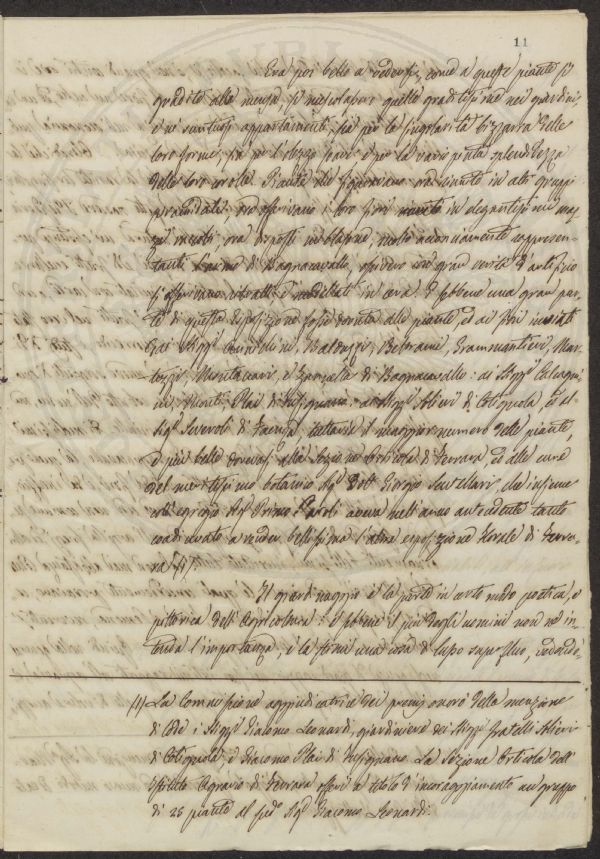 11
Era poi bello a vedersi, come a queste piante sì
gradite alla mensa, si mescolavano quelle graditissime nei giardini,
e ne' sontuosi appartamenti, sia per la singolarità bizzarra delle
loro forme, sia per l'olezzo soave e per la variopinta splendidezza
delle loro corolle. Piante che figuravano ora riunite in alti gruppi
piramidali, ed offerivano i loro fiori in elegantissimi maz-
zi, ora disposti molto acconciamente rappresen-
tanti di Bagnacavallo, ossivvero con gran verità d'artificio
si offerivano ritratti e modellati in cera. E sebbene una gran par-
te di questa Esposizione fosse dovuta alle piante, ed ai fiori inviati
dai Sigg.ri Balduzzi, Beltrami, Grammantieri, Mar-
tozzi, e di Bagnacavallo: ai Sigg.ri
Monti, Plai di Fusignano: ai Sigg.ri Alieri di Cotignola, ed al
Sig.r Severoli di Faenza, tuttavia il maggior numero delle piante,
e più belle dovevasi alla Sezione Orticola di Ferrara, ed alle cure
del meritissimo botanico Sig.r Dott. Giorgio che insieme
all'egregio Sig.r Primo aveva nell'anno antecedente tanto
coadiuvato a render bellissima l'altra esposizione florale di Ferra-
ra (1).
Il giardinaggio è la parte in certo modo poetica, e
pittorica dell'Agricoltura: e sebbene i più degli uomini non ne in-
tenda l'importanza, e la stimi una cosa di lusso superfluo,
(1) La Commissione aggiudicatrice dei premj onorò della menzione
di lode i Sigg.ri Giacomo Leonardi, giardiniere dei Sigg.ri fratelli Alieri
di Cotignola, e Giacomo Plai di Fusignano. La Sezione Orticola dell'
Istituto Agrario di Ferrara offerì a titolo d'incoraggiamento un gruppo
di 25 piante al sud.o Sig.r Giacomo Leonardi.